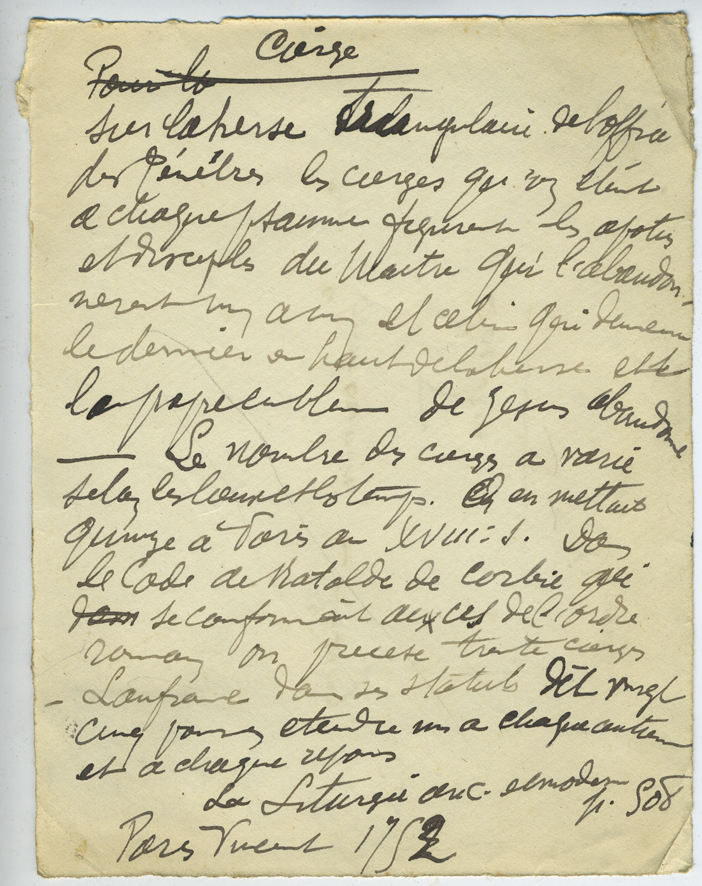 Cierge
Pour la
sur la herse triangulaire de l'office
des Ténèbres les cierges qu'on éteint
a chaque psaume figurent les apotres
et disciples du Maitre qui l'abandon-
nerent un a un et celui qui demeure
le dernier en haut de la herse est
de Jesus abandonné
— Le nombre des cierges a varié
selon les lieux et les temps. On en mettait
quinze à Paris au XVIII: s. Dans
le Code de Ratolde de Corbie qui
dans se conforment aux de l'ordre
romain on precise trente cierges
– Lanfranc dans ses statuts dit vingt
cinq pour en etendre un a chaque antien
et a chaque repons
La Liturgie anc. et modern p. 508
Paris Vincent 1752